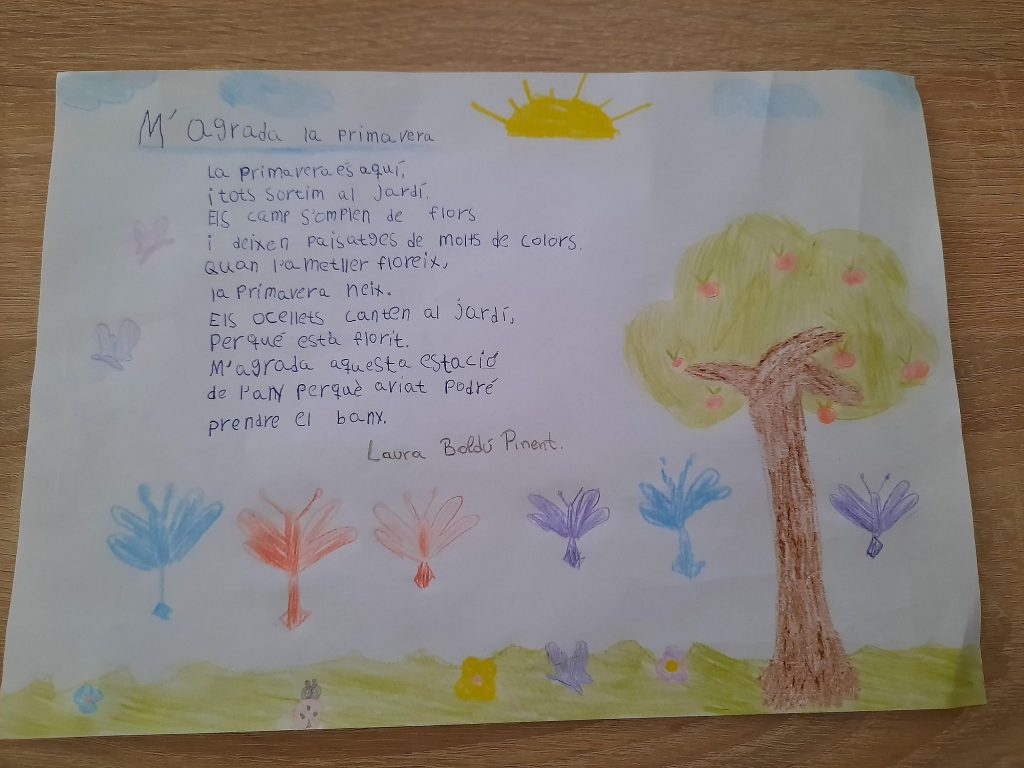 M'agrada la primavera
La primavera és aquí,
i tots sortim al jardí.
Els camp s'omplen de flors
i deixen paisatges de molts de colors.
Quan l'ametller floreix,
la primavera neix.
Els ocellets canten al jardí,
perquè està florit.
M'agrada aquesta estació
de l'any perquè aviat podré
prendre el bany.
Laura Boldú Pinent.